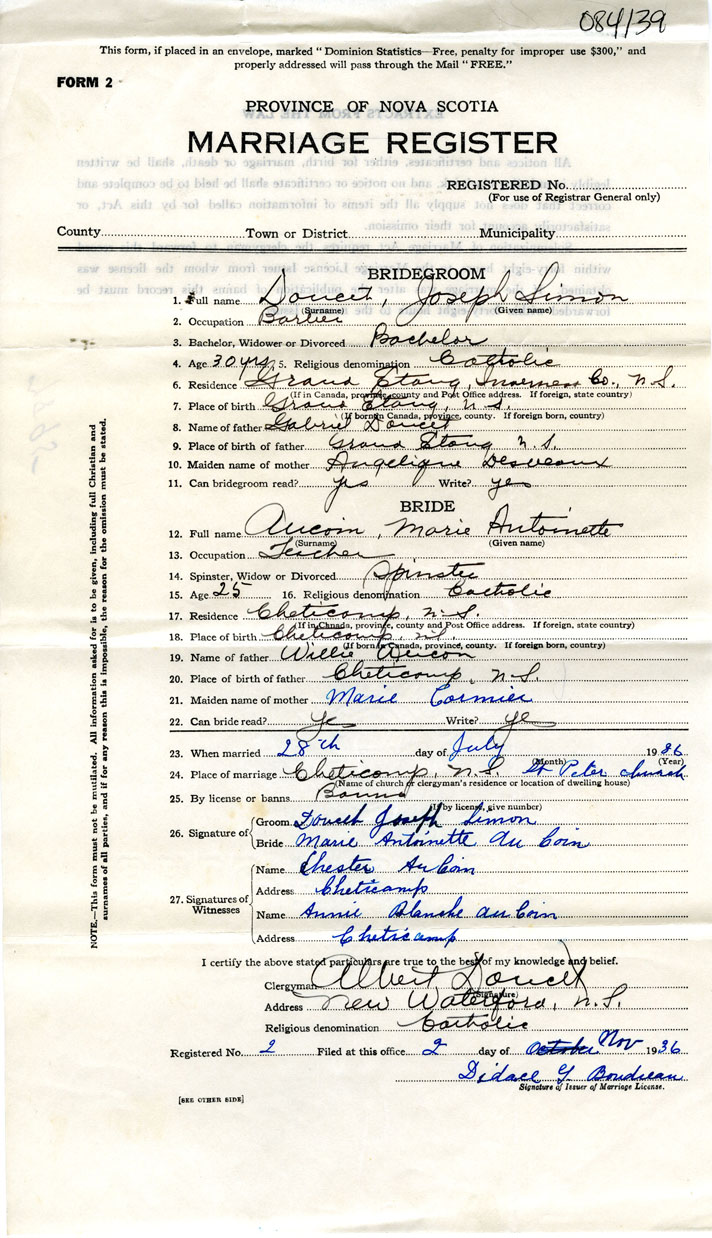 084/39
This form, if placed in an envelope, marked "Dominion Statistics—Free, penalty for improper use $300," and
properly addressed will pass through the Mail "FREE."
FORM 2
PROVINCE OF NOVA SCOTIA
MARRIAGE REGISTER
REGISTERED No.
(For use of Registrar General only)
County Town or District Municipality
BRIDEGROOM
1. Full name Doucet, Joseph Simon
(Surname) (Given name)
2. Occupation Barber
3. Bachelor, Widower or Divorced Bachelor
4. Age 30 yrs, 5. Religious denomination Catholic
6. Residence Grand Etang, Inverness Co., N.S.
(If in Canada, province, county and Post Office address. If foreign, state country)
7. Place of birth Grand Etang, N.S.
(If born in Canada, province, county. If foreign born, country)
8. Name of father Gabriel Doucet
9. Place of birth of father Grand Etang N.S.
10. Maiden name of mother Angelique Desveaux
11. Can bridegroom read? yes Write? yes
BRIDE
12. Full name Aucoin, Marie Antoinette
(Surname) (Given name)
13. Occupation Teacher
14. Spinster, Widow or Divorced Spinster
15. Age 25 16. Religious denomination Catholic
17. Residence Cheticamp, N.S.
(If in Canada, province, county and Post Office address. If foreign, state country)
18. Place of birth Cheticamp, N.S.
(If born in Canada, province, county. If foreign born, country)
19. Name of father Willie Aucoin
20. Place of birth of father Cheticamp, N.S.
21. Maiden name of mother Marie Cormier
22. Can bride read? yes Write? yes
23. When married 28th day of July 1936
(Month) (Year)
24. Place of marriage Cheticamp, N.S. St Peter church
(Name of church or clergyman's residence or location of dwelling house)
25. By license or banns Banns
(If by license, give number)
26. Signature of Groom Doucet Joseph Simon
Bride Marie Antoinette Au Coin
27. Signatures of Witnesses
Name Chester AuCoin
Address Cheticamp
Name Annie Blanche AuCoin
Address Cheticamp
I certify the above stated particulars are true to the best of my knowledge and belief.
Clergyman Albert Doucet
(Signature)
Address New Waterford, N.S.
Religious denomination Catholic
Registered No. 2 Filed at this office 2 day of October Nov 1936
Didace Y Boudreau
Signature of Issuer of Marriage License.
[SEE OTHER SIDE]
NOTE.—This form must not be mutilated. All information asked for is to be given, including full Christian and
surnames of all parties, and if for any reason this is impossible, the reason for the omission must be stated.